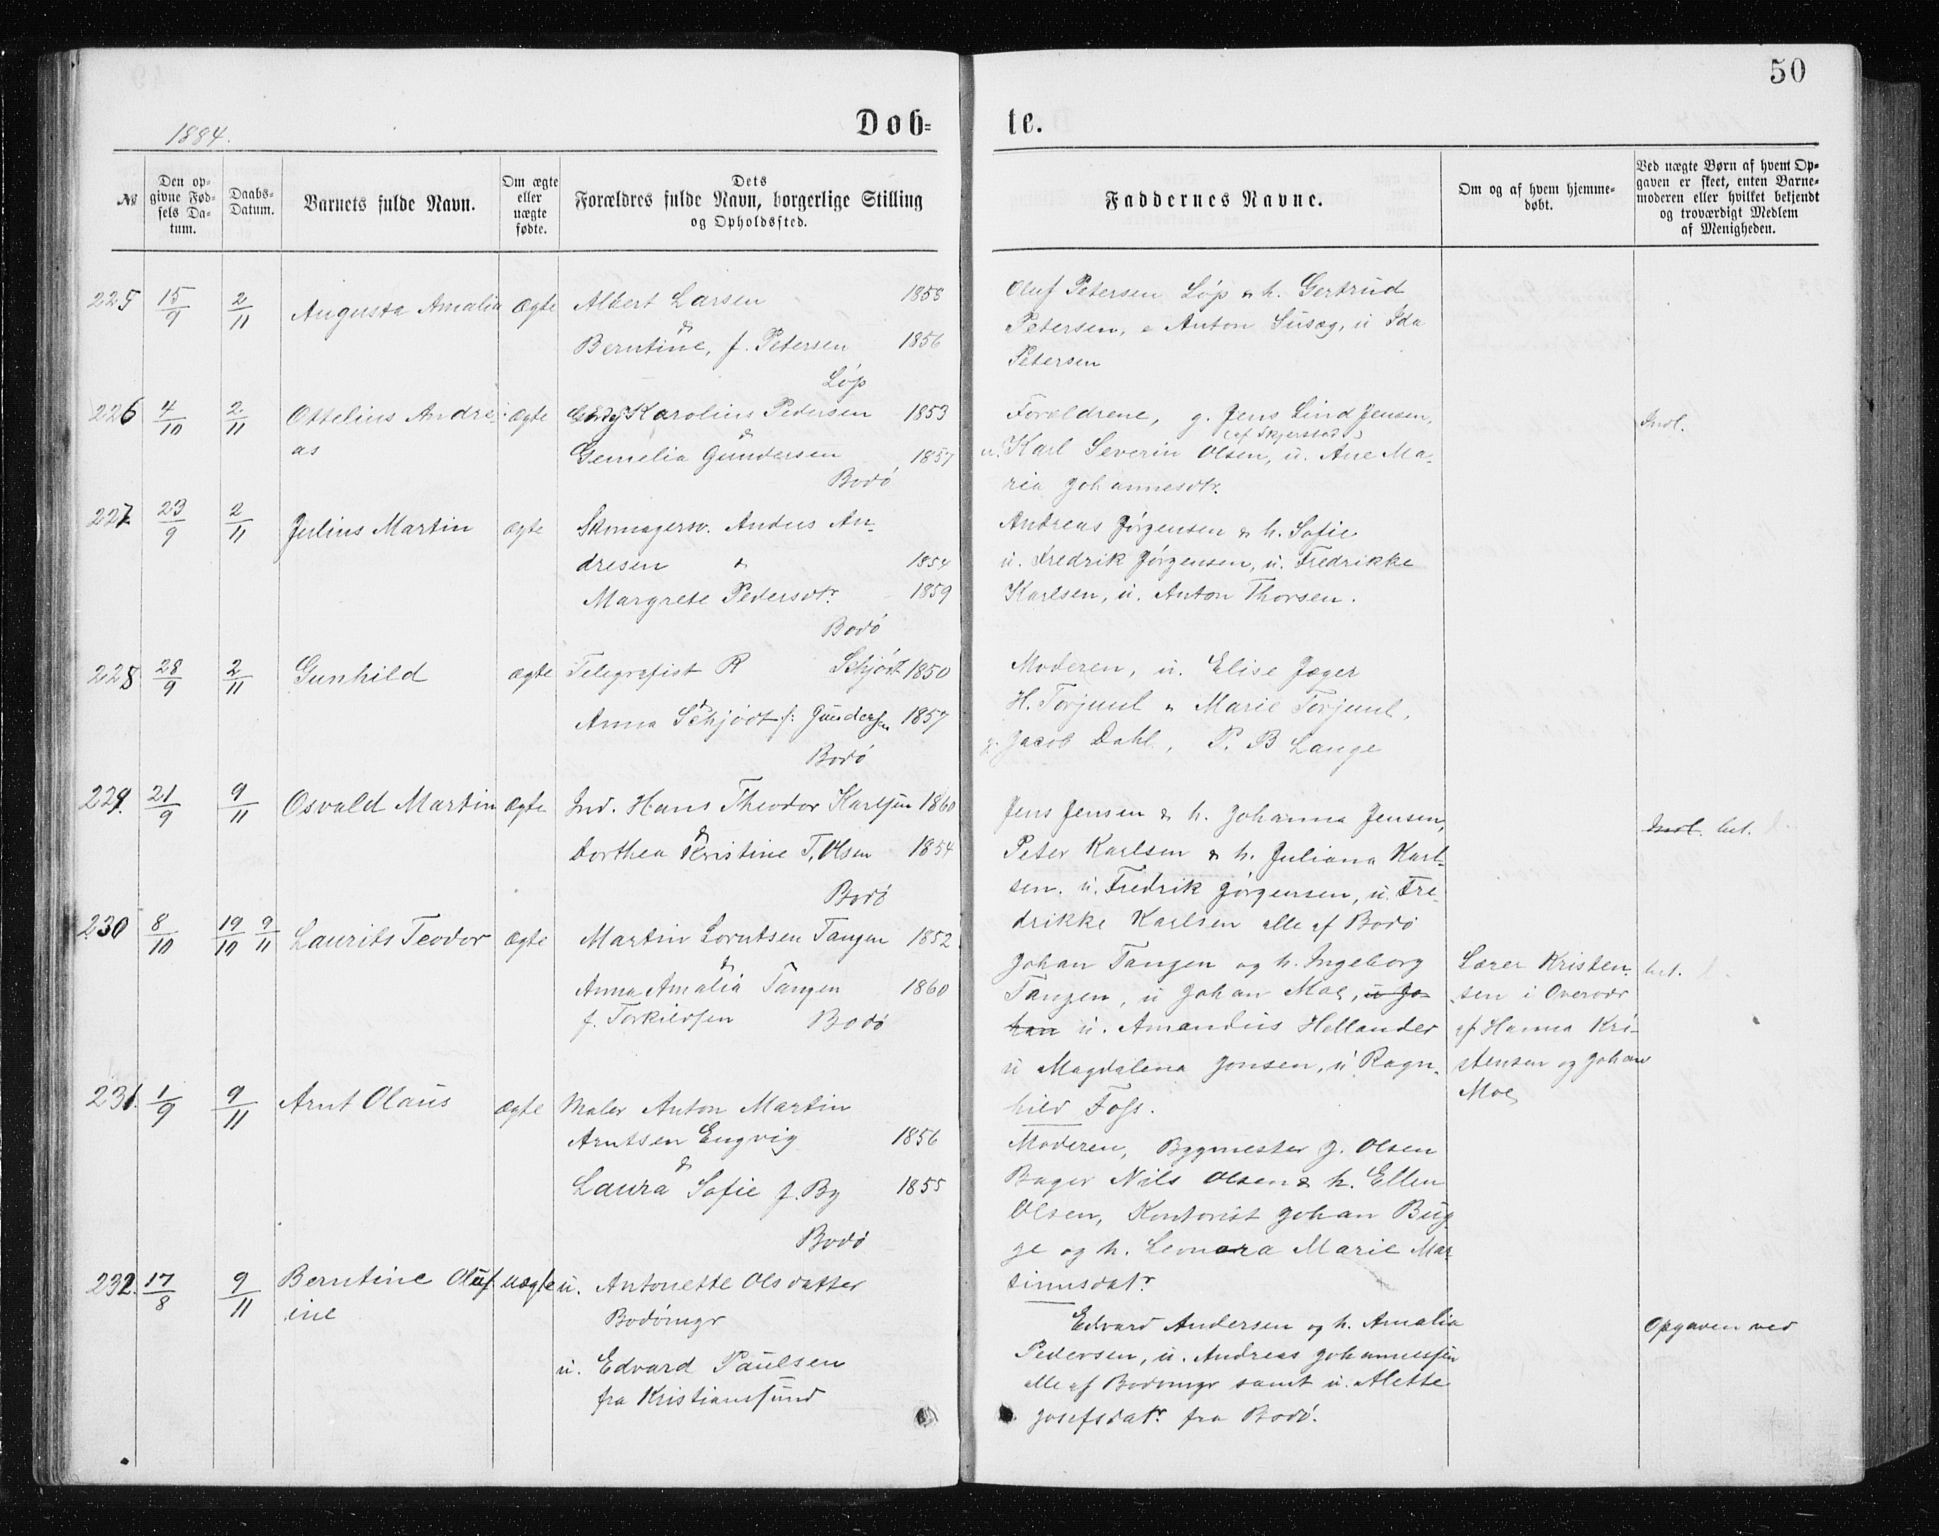 50
Døb= te.
1884.
№
Den op-
givne Fød-
sels Da-
tum.
Daabs-
Datum.
Barnets fulde Navn.
Om ægte
eller
uægte
fødte.
Dets
Forældres fulde Navn, borgerlige Stilling
og Opholdssted.
Faddernes Navne.
Om og af hvem hjemme-
døbt.
Ved uægte Børn af hvem Op-
gaven er skeet, enten Barne-
moderen eller hvilket bekjendt
og troværdigt Medlem
af Menigheden.
225 15/9 2/11 Augusta Amalia ægte
Albert Larsen 1858
&
Berntine, f. Petersen 1856
Løp
Oluf Petersen Løp & h. Gertrud
Petersen, e Anton Susæg, u Ida
Petersen
226 4/10 2/11 Ottelius Andre-
as
ægte
Karolius Pedersen 1853
&
Gemelia Gundersen 1857
Bodø
Forældrene, g. Jens Lind Jensen,
(af Skjerstad)
u. Karl Severin Olsen, u. Ane Ma-
ria Johannesdtr.
Indl.
227. 23/9 2/11 Julius Martin ægte
Skomagersv. Andus An-
dresen & 1854
Margrete Pedersdtr. 1859
Bodø
Andreas Jørgensen & h. Sofie
u. Fredrik Jørgensen, u. Fredrikke
Karlsen, u. Anton Thorsen.
228 28/9 2/11 Gunhild ægte
Telegrafist R Schjødt 1850
&
Anna Schjødt f. Gundersen 1857
Bodø
Moderen, u. Elise Jæger
H. Torjuul & Marie Torjuul,
g. Jacob Dahl, P. B Lange
229. 21/9 9/11 Osvald Martin ægte
Ind. Hans Theodor Karlsen 1860
&
Dorthea Kristine T. Olsen 1854
Bodø
Jens Jensen & h. Johanna Jensen,
Peter Karlsen & h. Juliana Karl-
sen. u. Fredrik Jørgensen, u. Fre-
drikke Karlsen alle af Bodø
Indl. bet.
230 8/10 19/10 9/11 Laurits Teodor ægte
Martin Lorntsen Tangen 1852
&
Anna Amalia Tangen 1860
f. Torkildsen Bodø
Johan Tangen og h. Ingeborg
Tangen, u Johan Moe, u Jo-
han u. Amandus Hellander
u Magdalena Jonsen, u Ragn-
hild Foss.
Lærer Kristen-
sen i Overvær
af Hanna Kri-
stensen og Johan
Moe
bet.
231. 1/9 9/11 Arnt Olaus ægte
Maler Anton Martin
Arntsen Engvig 1856
&
Laura Sofie f. By 1855
Bodø
Moderen, Bygmester J. Olsen
Bager Nils Olsen & h. Ellen
Olsen, Kontorist Johan Bug-
ge og h. Leonora Marie Mar-
tinusdatr.
232. 17/8 9/11 Berntine Oluf-
ine
uægte
u. Antonette Olsdatter
Bodømgr
u. Edvard Paulsen
fra Kristianssund
Edvard Andersen og h. Amalia
Pedersen, u. Andreas Johannessen
alle af Bodømgr samt u. Alette
Josefsdatr. fra Bodø.
Opgaven ved